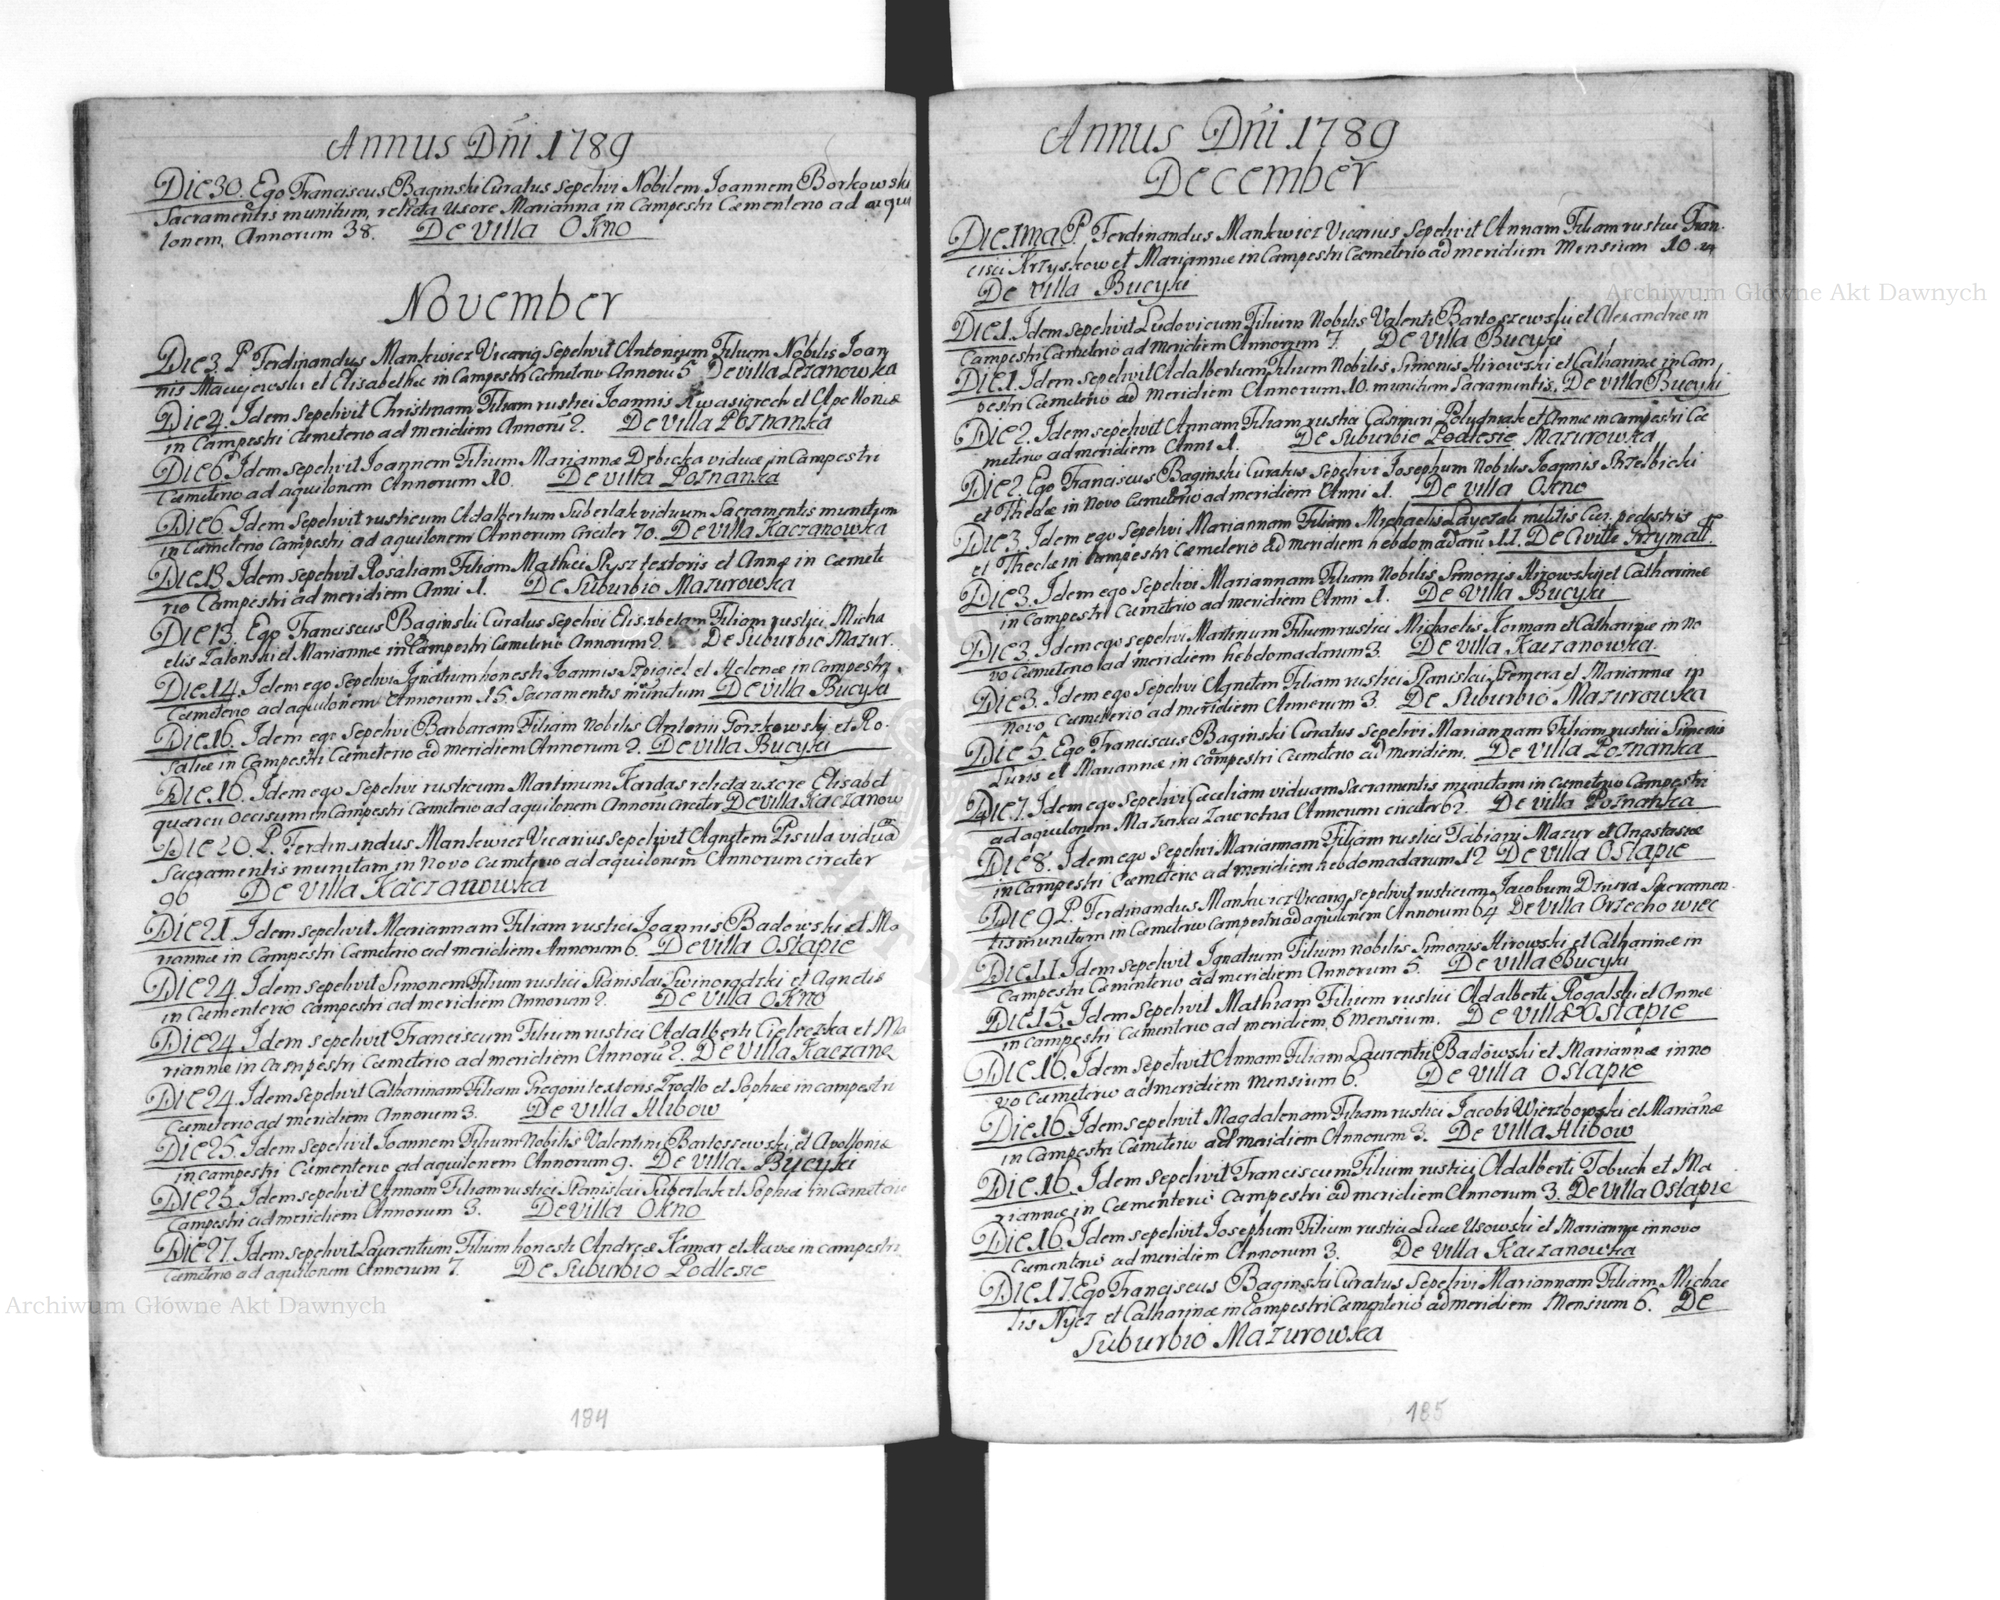 Annus Dñi 1789
Die 30. Ego Franciscus Baginski Curatus sepelivi Nobilem Joannem Borkowski
Sacramentis munitum, relicta Uxore Marianna in Campestri Cæmenterio ad aqui
lonem, Annorum 38. De Villa Okno
November
Die 3. P. Ferdinandus Mankwicz Vicarig Sepelivit Antonium Filium Nobilis Joan
nis Macyeiowski et Elisabethæ in Campestri Cæmeterio Annorũ 5. De villa Lezanowka
Die 4. Idem Sepelivit Christinam Filiam rustici Joannis Kwasigroch et Apolloniæ
in Campestri Cæmeterio ad meridiem Annorũ 2. De Villa Poznanka
Die 6. Idem Sepelivit Joannem Filium Mariannæ Dębicka viduæ in Campestri
Cæmeterio ad aquilonem Annorum 10. De villa Poznanka
Die 6 Idem Sepelivit rusticum Adalbertum Suberlak viduum Sacramentis munitum
in Cæmeterio Campestri ad aquilonem Annorum Circiter 70. De Villa Kaczanowka
Die 13. Idem Sepelivit Rosaliam Filiam Mathei Plysz textoris et Annæ in Cæmete
rio Campestri ad meridiem Anni 1. De Suburbio Mazurowka
Die 13. Ego Franciscus Baginski Curatus Sepelivi Elisabetam Filiam rustici Micha
elis Zatonski et Mariannæ in Campestri Cæmeterio Annorum 2. De Suburbio Mazur.
Die 14. Idem ego Sepelivi Ignatium honesti Joannis Szpigiel et Helenæ in Campestri
Cæmeterio ad aquilonem Annorum 15. Sacramentis munitum De Villa Bucyki
Die 16. Idem ego Sepelivi Barbaram Filiam nobilis Antonii Gorzkowski et Ro-
saliæ in Campestri Cæmeterio ad meridiem Annorum 2. De villa Bucyki
Die 16. Idem ego Sepelivi rusticum Martinum Kardas relicta uxore Elisabet
quercu occisum in Campestri Cæmeterio ad aquilonem Annorũ circiter De Villa Kaczanow
Die 20. P. Ferdinandus Mankwicz Vicarius Sepelivit Agnetem Pisula viduã
Sacramentis munitam in Novo Cæmeterio ad aquilonem Annorum circiter
96 De Villa Kaczanowka
Die 21. Idem sepelivit Mariannam Filiam rustici Joannis Badowski et Ma
riannæ in Campestri Cæmeterio ad meridiem Annorum 6. De Villa Ostapie
Die 24. Idem sepelivit Simonem Filium rustici Stanislai Swinorodzki et Agnetis
in Cæmenterio Campestri ad meridiem Annorum 2. De Villa Okno
Die 24. Idem sepelivit Franciscum Filium rustici Adalberti Cieleczka et Ma
riannæ in Campestri Cæmeterio ad meridiem Annorũ 2. De Villa Kaczana
Die 24. Idem Sepelivit Catharinam Filiam Gregorii textoris et Sophiæ in campestri
Cæmeterio ad meridiem Annorum 3. De Villa Klibow
Die 25. Idem sepelivit Joannem Filium Nobilis Valentini Bartoszewski et Apolloniæ
in Campestri Cæmenterio ad aquilonem Annorum 9. De Villa Bucyki
Die 25. Idem sepelivit Annam Filiam rustici Stanislai Suberlak et Sophiæ in Cæmeterio
Campestri ad meridiem Annorum 3. De Villa Okno
Die 27. Idem sepelivit Laurentium Filium honesti Andreæ Kamar et Havæ in campestri
Cæmeterio ad aquilonem Annorum 7. De Suburbio Podlesie
184
Annus Dñi 1789
December
Die 1ma P. Ferdinandus Mankwicz Vicarius Sepelivit Annam Filiam rustici Fran-
cisci Krzyskow et Mariannæ in Campestri Cæmeterio ad meridiem Mensium 10.
De Villa Bucyki
Die 1. Idem sepelivit Ludovicum Filium Nobilis Valenti Bartoszewski et Alexandræ in
Campestri Cæmeterio ad meridiem Annorum 7. De Villa Bucyki
Die 1. Idem sepelivit Adalbertum Filium Nobilis Simonis Hirowski et Catharinæ in Cam
pestri Cæmeterio ad meridiem Annorum 10. munitum Sacramentis. De villa Bucyki
Die 2. Idem sepelivit Annam Filiam rustici Casimiri Polygniak et Annæ in campestri Cæ
meterio ad meridiem Anni 1. De Suburbio Podlesie Mazurowka
Die 2. Ego Franciscus Baginski Curatus Sepelivi Josephum Nobilis Joannis Strzelbicki
et Theclæ in Novo Cæmeterio ad meridiem Anni 1. De villa Okno
Die 3. Idem ego Sepelivi Mariannam Filiam Michaelis militis Cæs. pedestris
et Theclæ in Campestri Cæmeterio ad meridiem hebdomadarũ 11. De Civitte Grzymałł.
Die 3. Idem ego Sepelivi Mariannam Filiam Nobilis Simonis Hirowski et Catharinæ
in Campestri Cæmeterio ad meridiem Anni 1. De Villa Bucyki
Die 3. Idem ego sepelivi Martinum Filium rustici Michaelis Korman et Catharinæ in no
vo Cæmeterio ad meridiem hebdomadarum 3. De villa Kaczanowka.
Die 3. Idem ego Sepelivi Agnetem Filiam rustici Stanislai Szemera et Mariannæ in
Novo Cæmeterio ad meridiem Annorum 3. De Suburbio Mazurowka
Die 5. Ego Franciscus Baginski Curatus Sepelivi Mariannam Filiam rustici Simonis
Luris et Mariannæ in Campestri Cæmeterio ad meridiem. De Villa Poznanka
Die 7. Idem ego Sepelivi Cæciliam viduam Sacramentis munitam in Cæmeterio Campestri
ad aquilonem Mazurka Zawrotna Annorum circiter 62. De villa Poznanka
Die 8. Idem ego Sepelivi Mariannam Filiam rustici Fabiani Mazur et Anastasiæ
in Campestri Cæmeterio ad meridiem hebdomadarum 12 De Villa Ostapie
Die 9 P. Ferdinandus Mankwicz Vicarig sepelivit rusticum Jacobum Dziura Sacramen-
tis munitum in Cæmeterio Campestri ad aquilonem Annorum 64 De Villa Orzechowiec
Die 11. Idem Sepelivit Ignatium Filium nobilis Simonis Hirowski et Catharinæ in
Campestri Cæmenterio ad meridiem Annorum 5. De Villa Bucyki
Die 15. Idem Sepelivit Mathiam Filium rustici Adalberti Rogalski et Annæ
in Campestri Cæmenterio ad meridiem, 6 Mensium. De Villa Ostapie
Die 16. Idem Sepelivit Annam Filiam Laurentii Badowski et Mariannæ in no
vo Cæmeterio ad meridiem Mensium 6. De Villa Ostapie
Die 16. Idem sepelivit Magdalenam Filiam rustici Jacobi Wierzbowski et Mariañæ
in Campestri Cæmeterio ad meridiem Annorum 3. De Villa Klibow
Die 16. Idem Sepelivit Franciscum Filium rustici Adalberti Tobuch et Ma
riannæ in Cæmenterio Campestri ad meridiem Annorum 3. De Villa Ostapie
Die 16. Idem sepelivit Josephum Filium rustici Lucæ Usowski et Mariannæ in novo
Cæmenterio ad meridiem Annorum 3. De Villa Kaczanowka
Die 17. Ego Franciscus Baginski Curatus Sepelivi Mariannam Filiam Michae
lis Nycz et Catharinæ in Campestri Cæmenterio ad meridiem Mensium 6. De
Suburbio Mazurowka
185
Archiwum Główne Akt Dawnych
Archiwum Główne Akt Dawnych